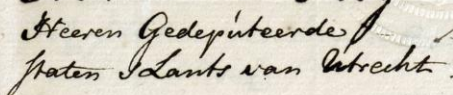 Heeren Gedepúteerde
staten sLants van Utrecht